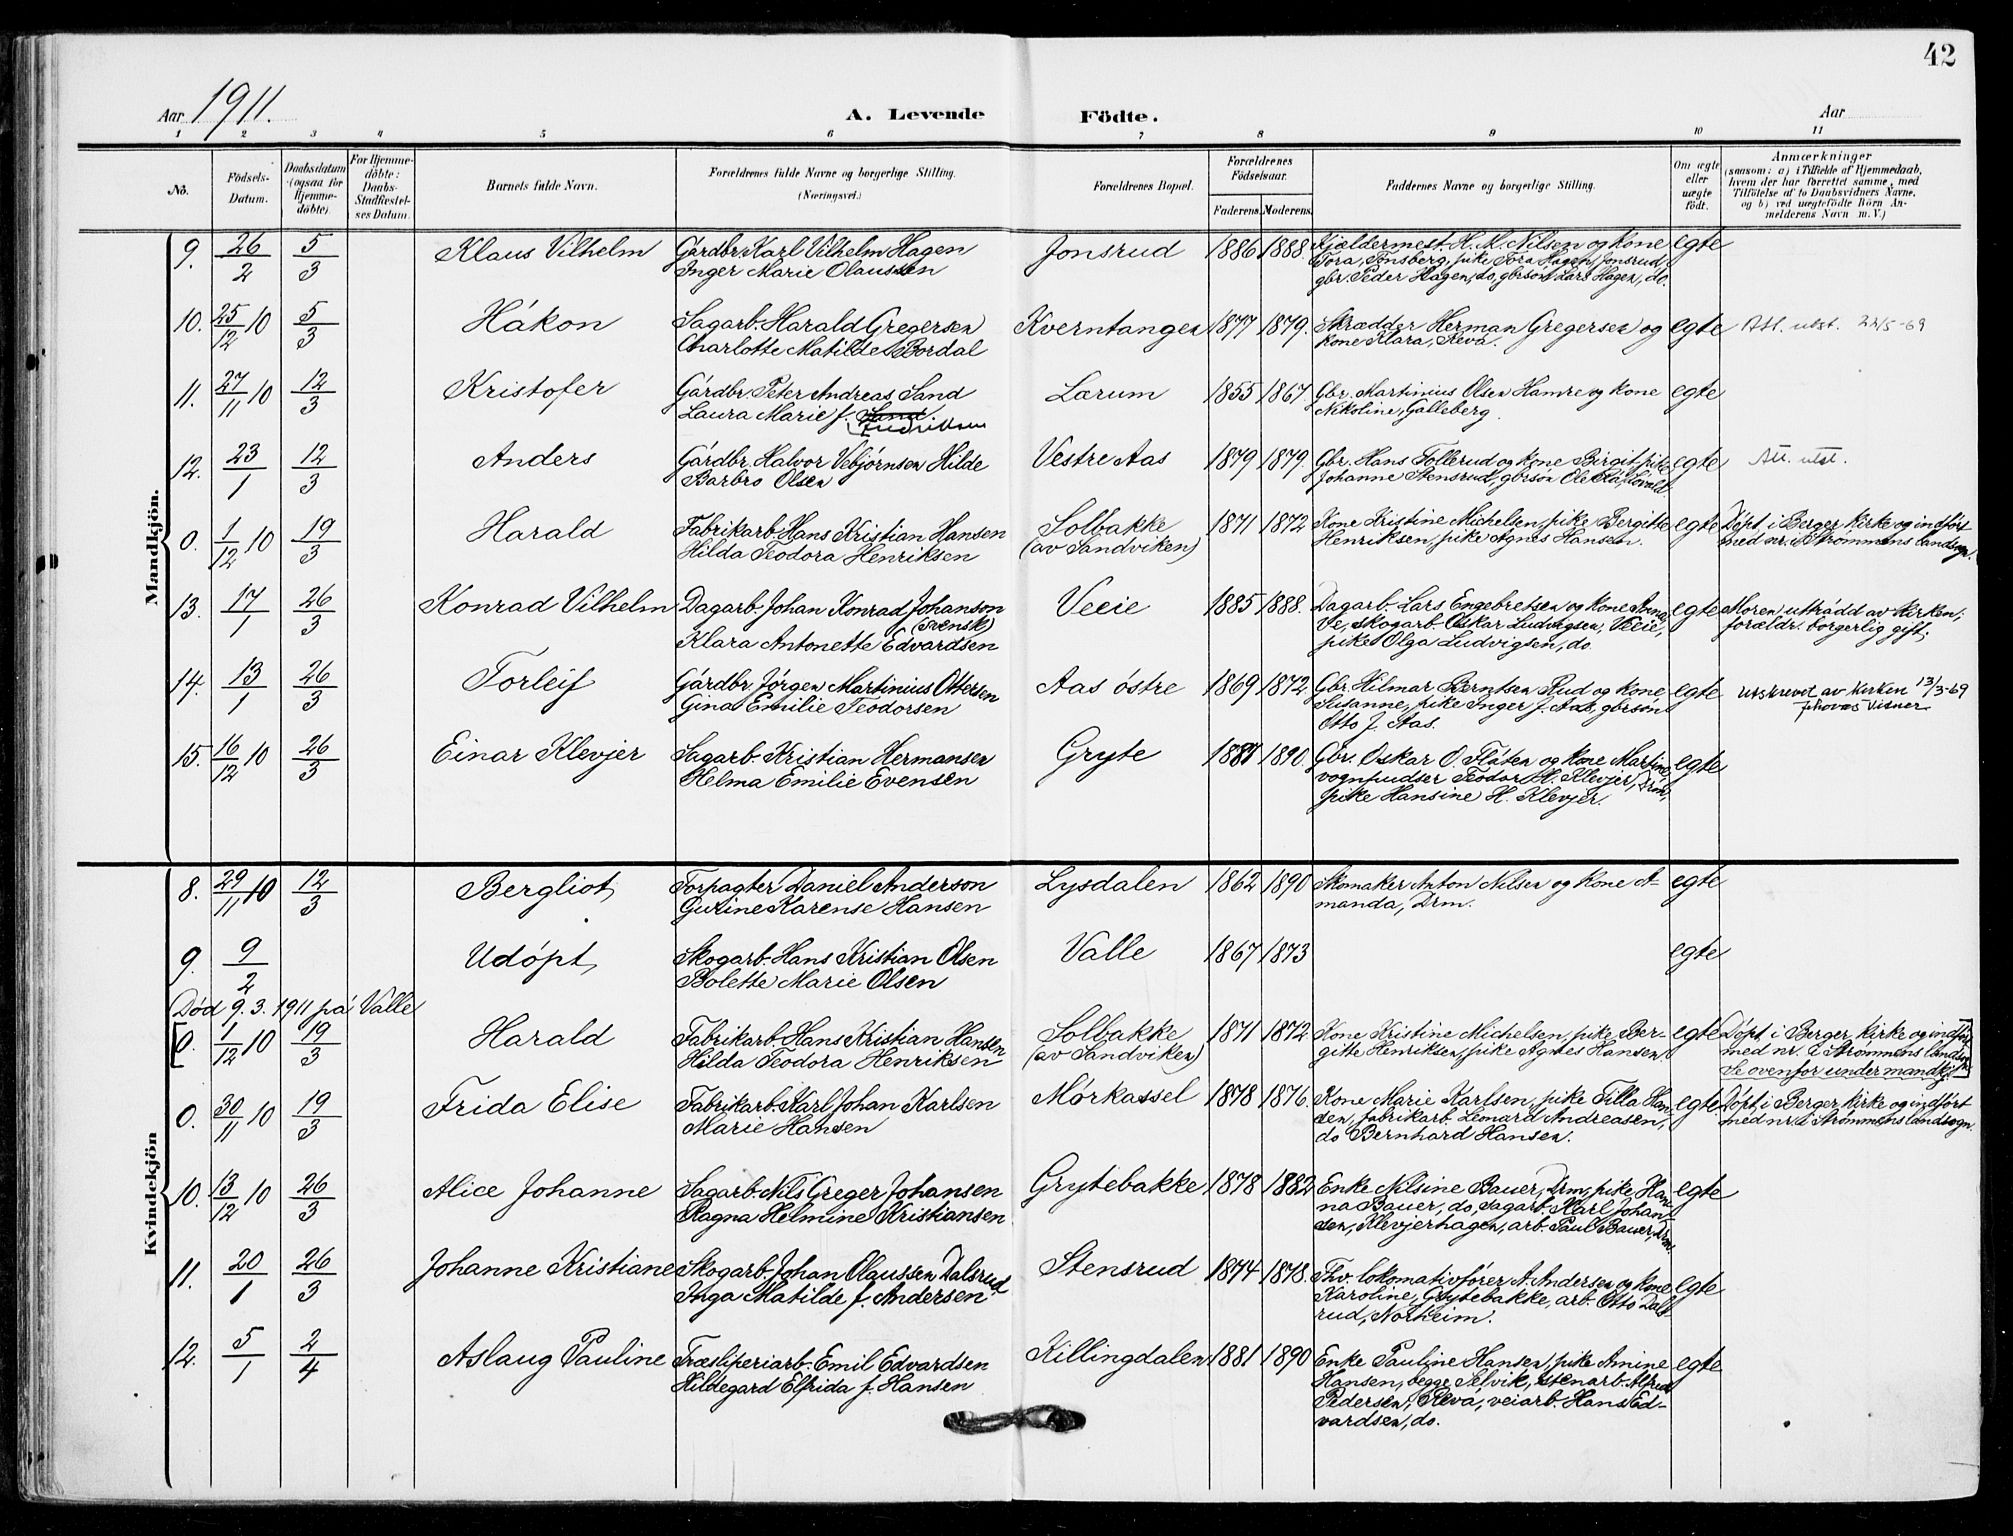 42
Aar 1911.
A. Levende Födte.
Aar
1 2 3 4 5 6 7 8 9 10 11
No.
Födsels-Datum.
Daabsdatum (ogsaa for Hjemmedöbte).
For Hjemmedöbte: Daabs-Stadfæstelses Datum.
Barnets fulde Navn.
Forældrenes fulde Navne og borgerlige Stilling. (Næringsvei.)
Forældrenes Bopæl.
Forældrenes Födselsaar.
Faderens. Moderens.
Faddernes Navne og borgerlige Stilling.
Om ægte eller uægte födt.
Anmærkninger
(saasom: a) i Tilfælde af Hjemmedaab,
hvem der har forrettet samme, med
Tilföielse af to Daabsvidners Navne,
og b) ved uægtefödte Börn An-
melderens Navn m. V.)
Mandkjön.
9. 26/2 5/3 Klaus Vilhelm Gårdbr. Karl Vilhelm Hagen Jonsrud 1886 1888. Kjældermest. H. M. Nilsen og kone egte
Inger Marie Olaussen Tora, Tønsberg, pike Tora Hagen, Jonsrud,
gbr. Peder Hagen, do, gbrsøn Lars Hagen, do.
10. 25/12 10 5/3 Håkon Sagarb. Harald Gregersen Kverntangen 1877 1879. Skrædder Herman Gregersen og egte Att. utst. 22/5-69
Charlotte Matilde Bordal kone Klara, Revå.
11. 27/11 10 12/3 Kristofer Gårdbr. Peter Andreas Sand Lærum 1855 1867. Gbr. Martinius Olsen Hamre og kone egte
Laura Marie f. Sand Nikoline, Galleberg.
Fredriksen
12. 23/1 12/3 Anders Gårdbr. Halvor Vebjørnsen Hilde Vestre Aas 1879 1879. Gbr. Hans Tollerud og kone Birgit, pike egte Att. utst.
Barbro Olsen Johanne Stensrud, gbrsøn Ole
0. 1/12 10 19/3 Harald Fabrikarb. Hans Kristian Hansen Solbakke 1871 1872 Kone Kristine Michelsen, pike Bergitte egte Døpt i Berger kirke og indført
Hilda Teodora Henriksen (av Sandviken) Henriksen, pike Agnes Hansen. med nr. i Strømmens landsogn.
13. 17/1 26/3 Konrad Vilhelm Dagarb. Johan Konrad Johanson Veeie 1885 1888. Dagarb. Lars Engebretsen og kone Anna, egte Moren uttrådd av kirken;
(svensk) Ve, skogarb. Oskar Ludvigsen, Veeie, forældr. borgerlig gift;
Klara Antonette Edvardsen pike Olga Ludvigsen, do.
14. 13/1 26/3 Torleif Gårdbr. Jørgen Martinius Ottersen Aas østre 1869 1872. Gbr. Hilmar Berntsen Rud og kone egte Utskrevet av kirken 13/3-69
Gina Emilie Teodorsen Susanne, pike Inger J. Aas, gbrsøn Jehovas Vitner
Otto J. Aas.
15. 16/12 10 26/3 Einar Klevjer Sagarb. Kristian Hermansen Gryte 1887 1890. Gbr. Oskar O. Flåten og kone Martine, egte
Helma Emilie Evensen vognpudser Teodor H. Klevjer, Drm,
pike Hansine H. Klevjer.
Kvindekjön
8. 29/11 10 12/3 Bergliot Forpagter Daniel Anderson Lysdalen 1862 1890 Skomaker Anton Nilsen og kone A- egte
Gurine Karense Hansen manda, Drm.
9. 9/2 Udøpt Skogarb. Hans Kristian Olsen Valle 1867 1873 egte
Bolette Marie Olsen
Død 9. 3. 1911 på Valle
[0. 1/12 10 19/3 Harald Fabrikarb. Hans Kristian Hansen Solbakke 1871 1872. Kone Kristine Michelsen, pike Ber- egte Døpt i Berger kirke og indført
Hilda Teodora Henriksen (av Sandviken) gitte Henriksen, pike Agnes Hansen. med nr. i Strømmens landsogn
Se ovenfor under mandkj.]
0. 30/11 10 19/3 Frida Elise Fabrikarb. Karl Johan Karlsen Mørkassel 1878 1876. Kone Marie Karlsen, pike Tilla Han- egte Døpt i Berger kirke og indført
Marie Hansen sen, fabrikarb. Lemard Andreasen, med nr. i Strømmens landsogn.
do Bernhard Hansen.
10. 13/12 10 26/3 Alice Johanne Sagarb. Nils Greger Johansen Grytebakke 1878 1882 Enke Nilsine Bauer, Drm, pike Han- egte
Ragna Helmine Kristiansen na Bauer, do, sagarb. Karl Johan-
sen, Klevjerhagen, arb. Paul Bauer, Drm.
11. 20/1 26/3 Johanne Kristiane Skogarb. Johan Olaussen Dalsrud Stensrud 1874 1878. Fhv. lokomotivfører A. Andersen og kone egte
Inga Matilde f. Andersen Karoline, Grytebakke, arb. Otto Dals-
rud, Norheim.
12. 5/1 2/4 Aslaug Pauline Træsliperiarb. Emil Edvardsen Killingdalen 1881 1890 Enke Pauline Hansen, pike Amine egte
Hildegard Elfrida f. Hansen Hansen, begge Selvik, stenarb. Alfred
Pedersen, Revå, veiarb. Hans Ed-
vardsen, do.